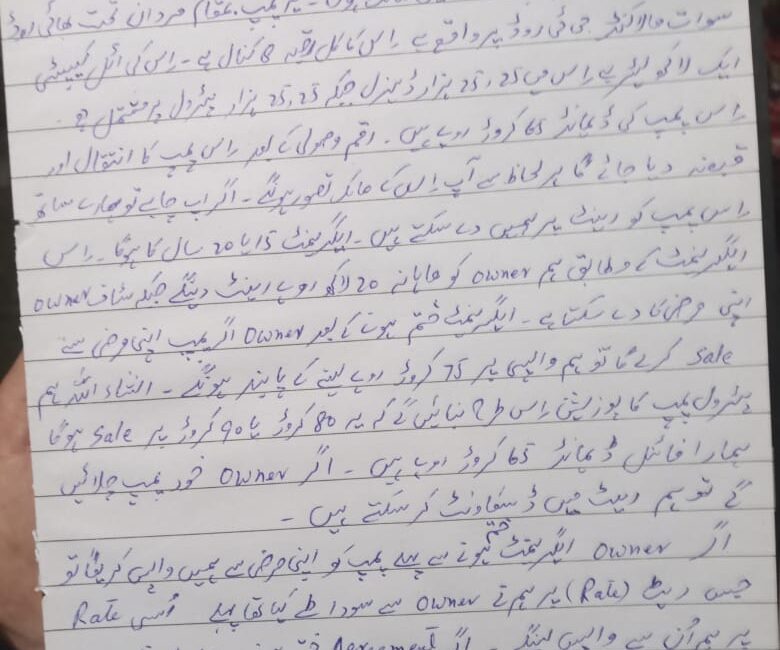 پمپ بمقام مردان تخت بھائی روڈ
سوات مالاکنڈ جی ٹی روڈ پر واقع ہے اس کا کل رقبہ 8 کنال ہے۔ اس کی ائل کیپسٹی
ایک لاکھ لیٹر ہے اس میں 25،25 ہزار ڈیزل جبکہ 25،25 ہزار پیٹرول پر مشتمل ہے۔
اس پمپ کی ڈیمانڈ 65 کروڑ روپے ہیں۔ رقم وصولی کے بعد اس پمپ کا انتقال اور
قبضہ دیا جائے گا ہر لحاظ سے آپ اس کے مالک تصور ہونگے۔ اگر اپ چاہے تو ہمارے ساتھ
اس پمپ کو رینٹ پر ہمیں دے سکتے ہیں۔ ایگریمنٹ 15 یا 20 سال کا ہوگا۔ اس
ایگریمنٹ کے مطابق ہم owner کو ماہانہ 20 لاکھ روپے رینٹ دینگے جبکہ سٹاف owner
اپنی مرضی کا دے سکتا ہے۔ ایگریمنٹ ختم ہونے کے بعد owner اگر پمپ اپنی مرضی سے
Sale کرے گا تو ہم واپسی پر 75 کروڑ روپے لینے کے پابند ہونگے۔ انشاء اللہ ہم
پیٹرول پمپ کا پوزیشن اس طرح بنائیں گے کہ یہ 80 کروڑ یا 90 کروڑ پر Sale ہوگا
ہمارا فائنل ڈیمانڈ 65 کروڑ روپے ہیں۔ اگر owner خود پمپ چلائیں
گے تو ہم ریٹ میں ڈسکاونٹ کر سکتے ہیں۔
اگر owner ایگریمنٹ ختم ہونے سے پہلے پمپ کو اپنی مرضی سے ہمیں واپس کریگا تو
جس ریٹ (Rate) پر ہم نے owner سے سودا طے کیا تھا پہلے اُسی Rate
پر ہم اُن سے واپس لینگے۔ اگر Agreement